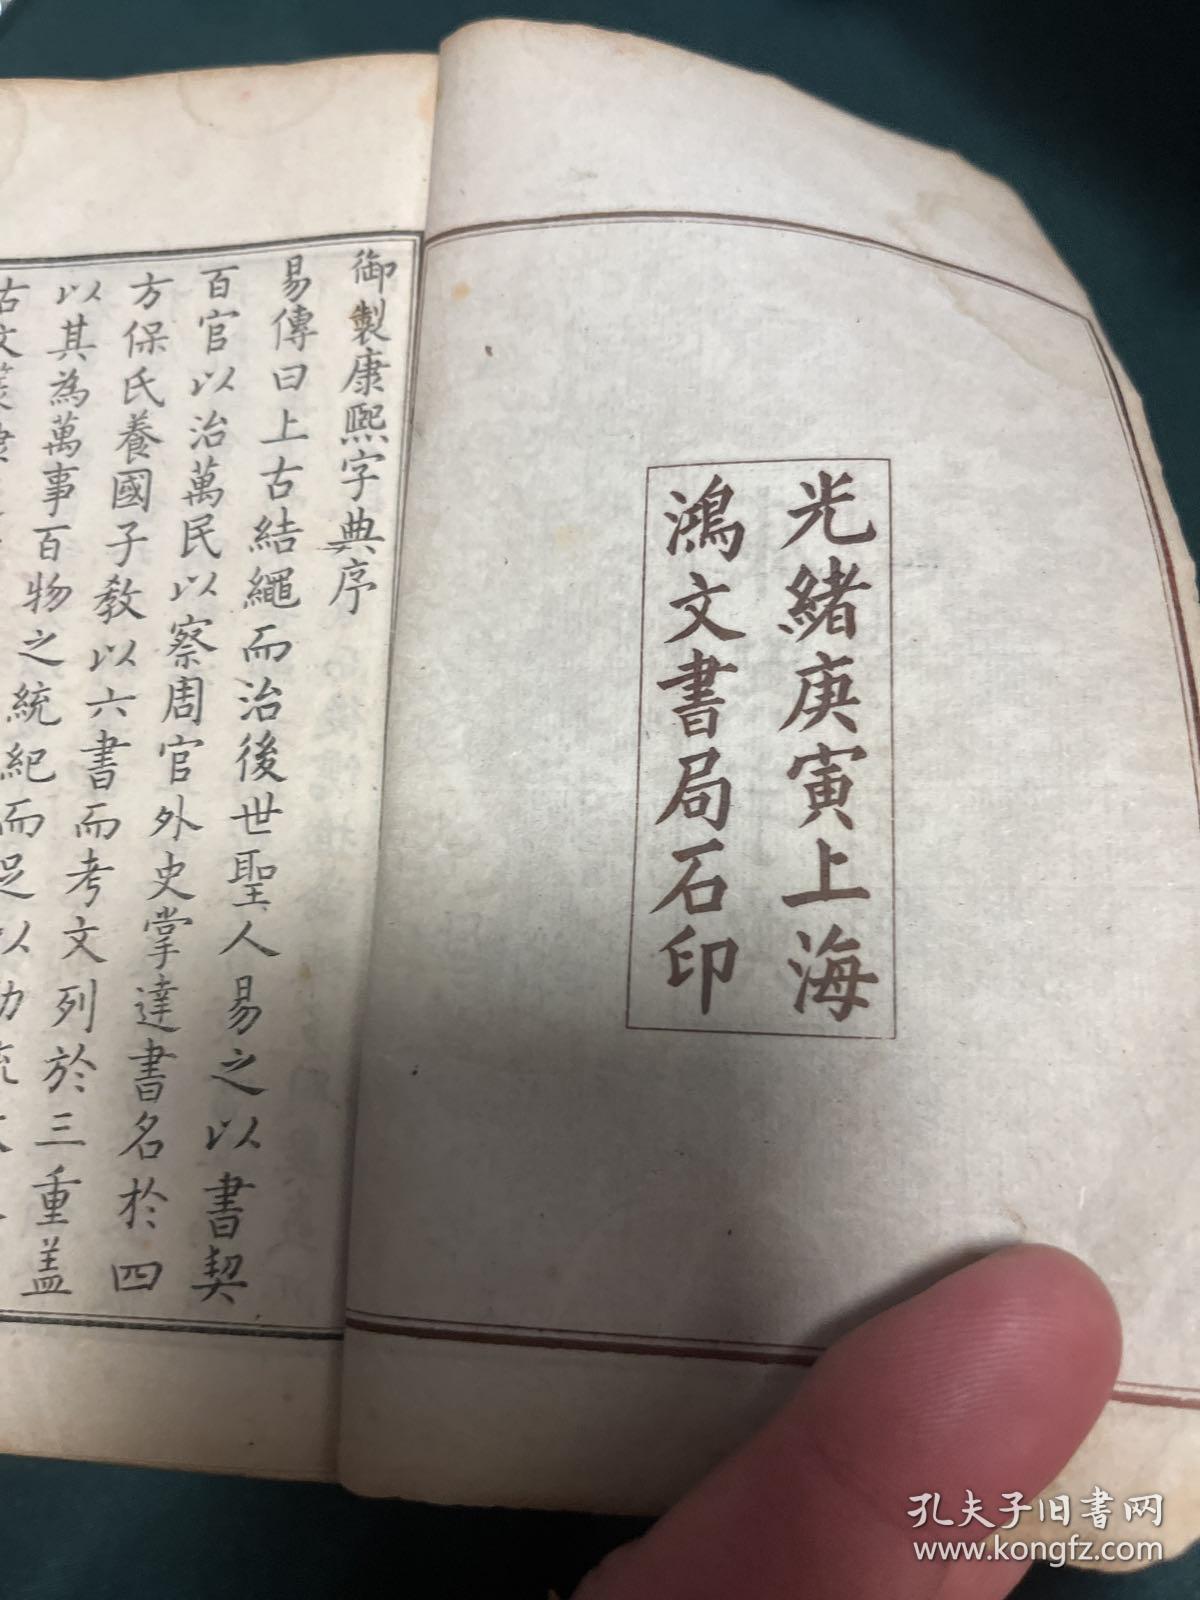 光緒庚寅上海
鴻文書局石印
御製康熙字典序
易傳曰上古結繩而治後世聖人易之以書契
百官以治萬民以察周官外史掌達書名於四
方保氏養國子教以六書而考文列於三重盖
以其為萬事百物之統紀而足以助流
古文篆隸
孔夫子旧书网
www.kongfz.com